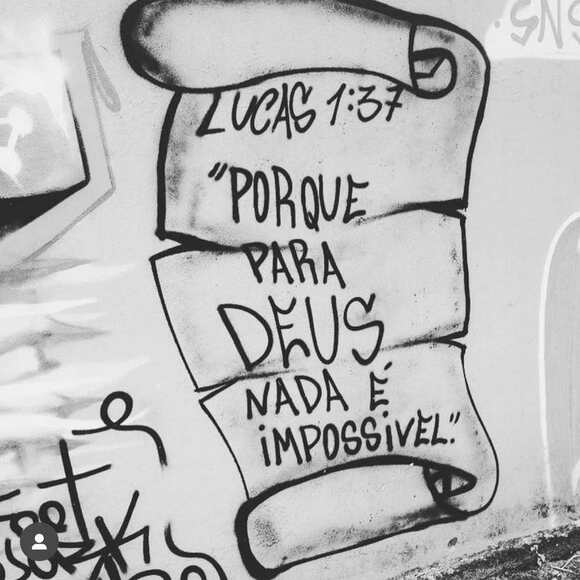 SNS
LUCAS 1:37
"PORQUE
PARA
DEUS
NADA É
IMPOSSÍVEL."